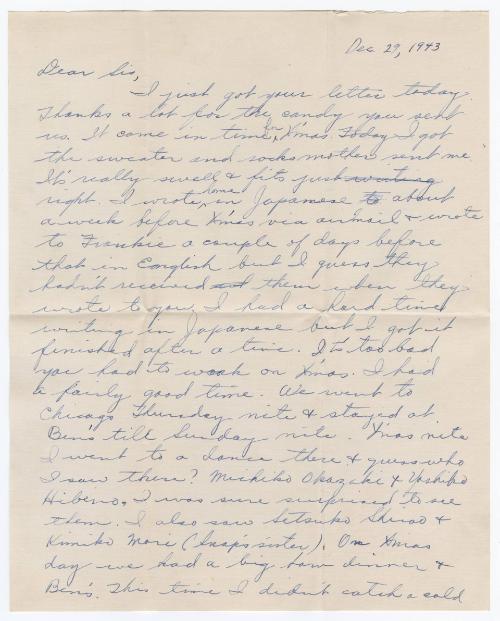 Dec 29, 1943
Dear Sis,
I just got your letter today.
Thanks a lot for the candy you sent
us. It came in time for X'mas. Today I got
the sweater and socks mother sent me.
It's really swell & fits just writing
right. I wrote home in Japanese to about
a week before X'mas via airmail & wrote
to Frankie a couple of days before
that in English but I guess they
hadn't received them when they
wrote to you. I had a hard time
writing in Japanese but I got it
finished after a time. It's too bad
you had to work on X'mas. I had
a fairly good time. We went to
Chicago Thursday nite & stayed at
Ben's till Sunday nite. X'mas nite
I went to a dance there & guess who
I saw there? Michiko Okazaki & Yoshiko
Hibeno. I was sure surprised to see
them. I also saw Setsuko Shirao &
Kimiko Mori (Snap's sister). On X'mas
day we had a big ham dinner &
Ben's. This time I didn't catch a cold